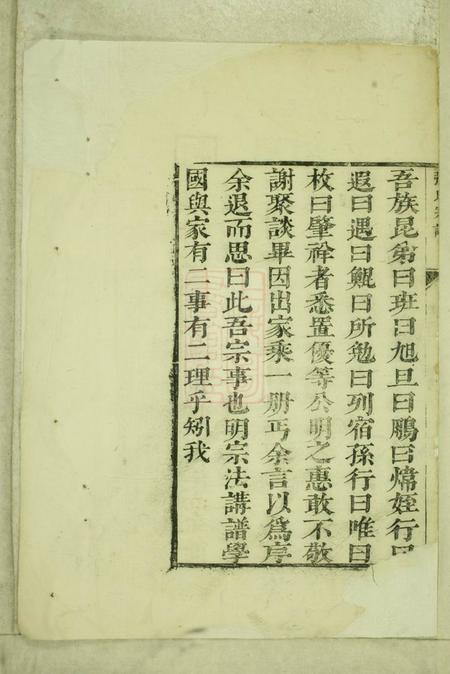 吾族昆弟曰班曰旭旦曰鵬曰煒姪行曰
遐曰遇曰鯤曰所勉曰列宿孫行曰唯曰
枚曰肇祥者悉置優等公明之惠敢不敬
謝聚談畢因出家乘一册丐余言以為序
余退而思曰此吾宗事也明宗法講譜學
國與家有二事有二理乎矧我